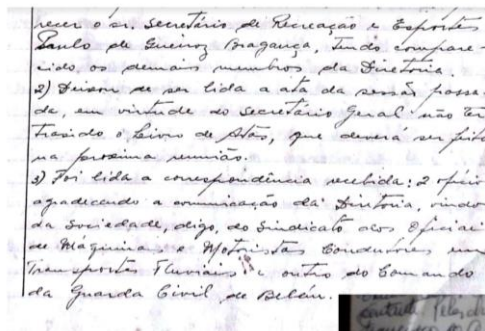 recer o sr. Secretário de Recreação e Esportes
Paulo de Queiroz Bragança, tendo compare-
cido, os demais membros da Diretoria.
2) Deixou de ser lida a ata da sessão passa-
da, em virtude do Secretário Geral não ter
trazido o Livro de Atas, que deverá ser feito
na proxima reunião.
3) Foi lida a correspondência recebida: 2 oficio
agradecendo a comunicação da Diretoria, vindo
da Sociedade, digo, do Sindicato dos Oficiai
de Máquinas e Motoristas Condutores
Transportes Fluviais e outro do Comando
da Guarda Civil de Belém.